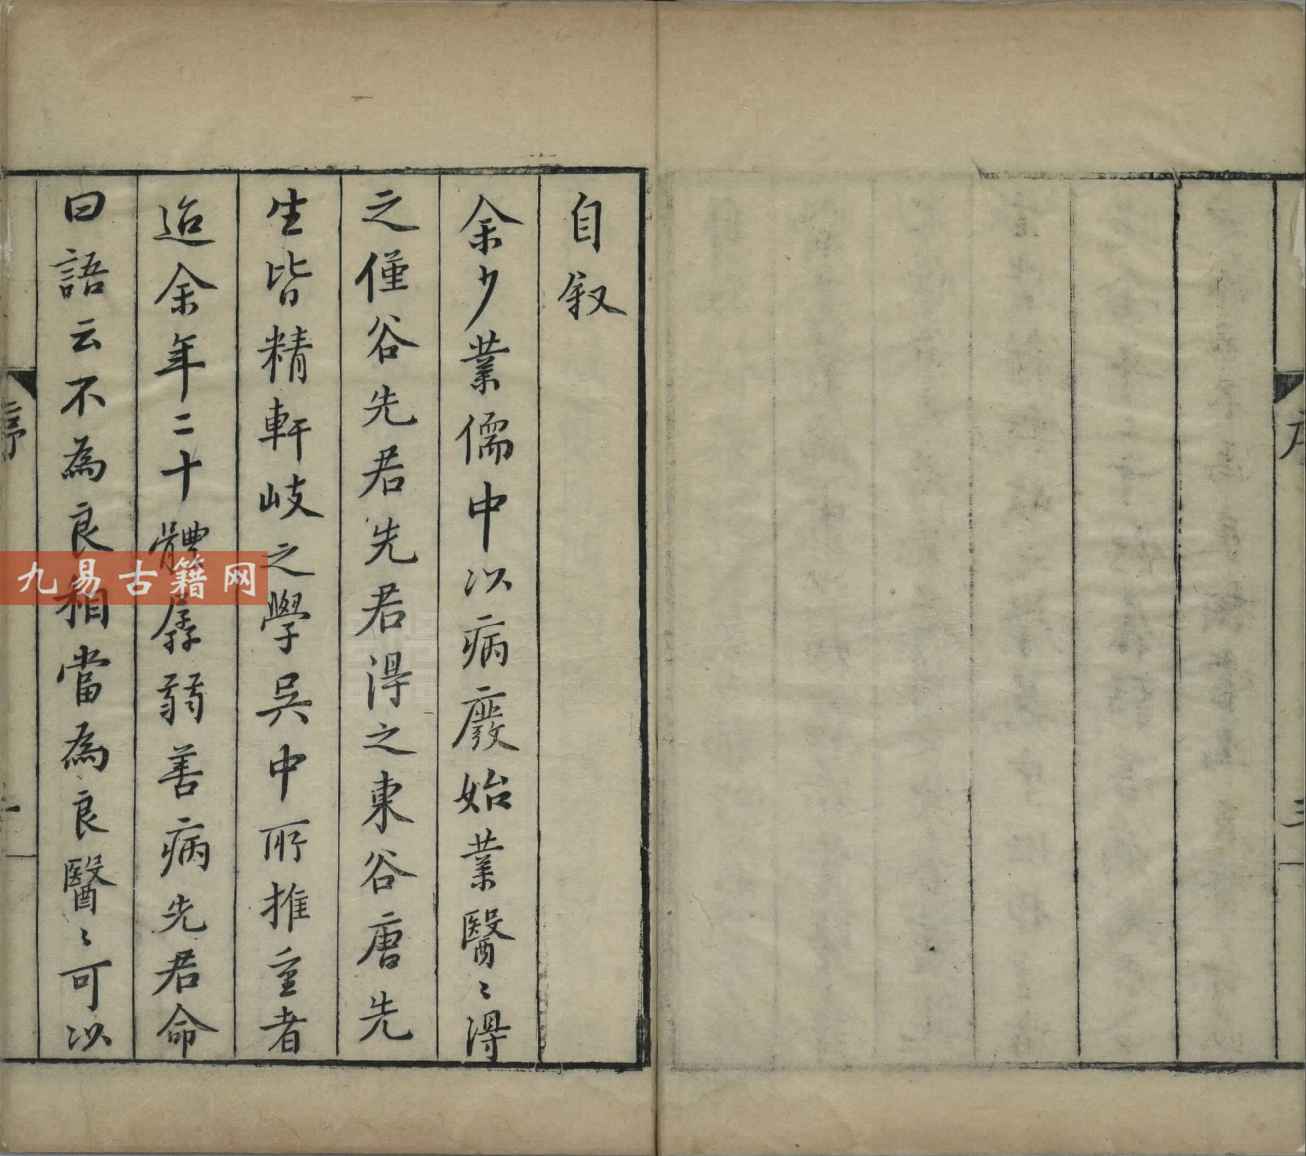 自叙
余少業儒中以病廢始業醫〻得
之僅谷先君先君得之東谷唐先
生皆精軒岐之學吳中所推重者
迨余年二十體孱弱善病先君命
曰語云不為良相當為良醫〻可以
序
九易古籍网